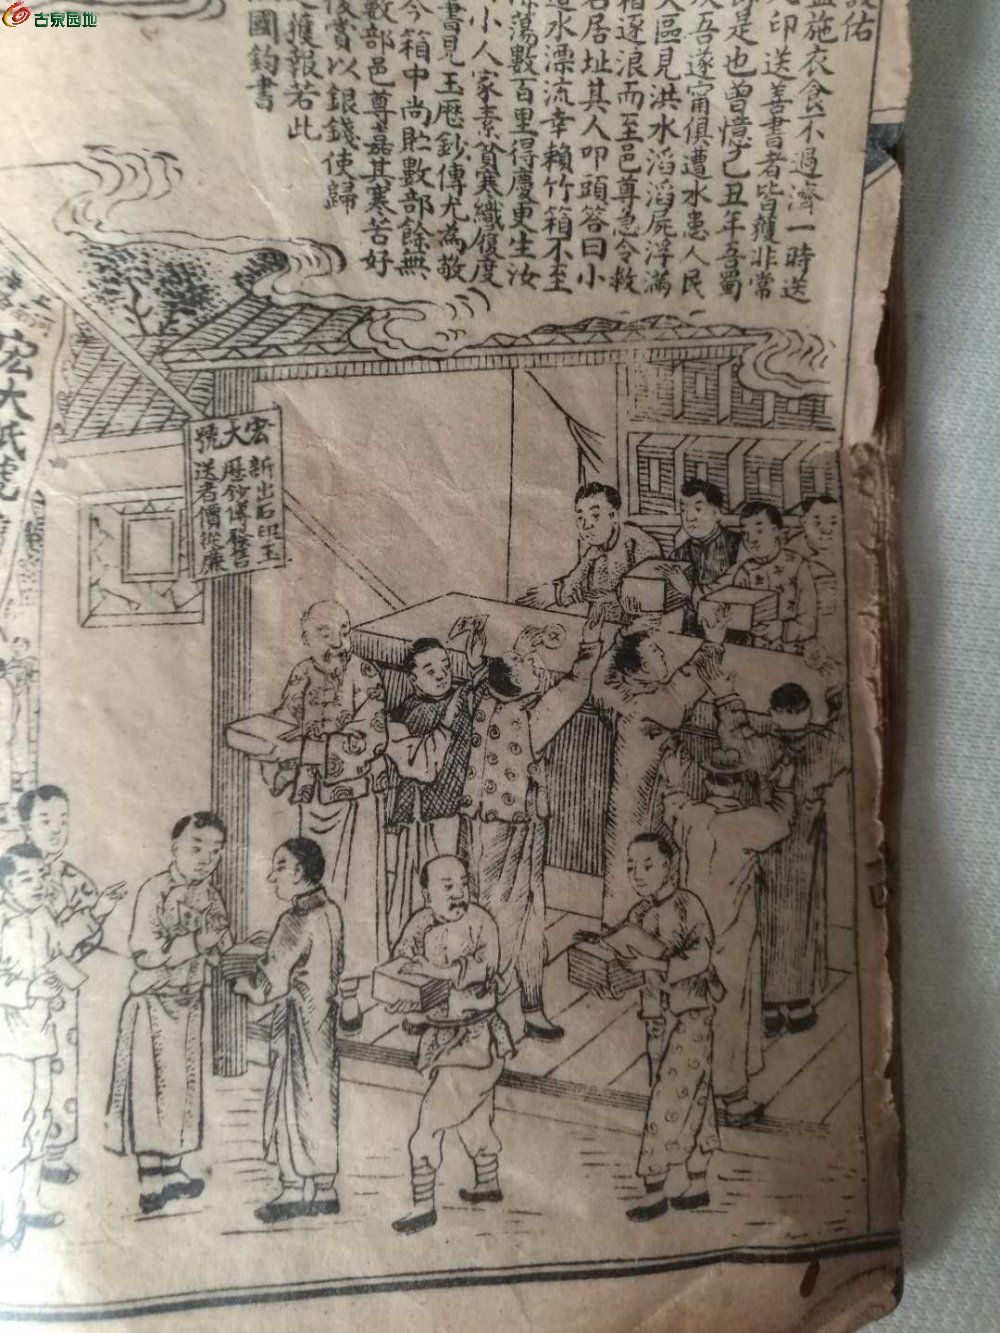 古泉园地
佑
施衣食不過濟一時送
印送善書者皆獲非常
是也曾憶己丑年吾蜀
吾遂甯俱遭水患人民
大區見洪水滔滔屍浮滿
箱逐浪而至邑尊急令救
名居址其人叩頭答曰小
遭水漂流幸賴竹箱不至
蕩數百里得慶更生汝
小人家素貧寒織履度
書見玉歷鈔傳尤為敬
今箱中尚貯數部餘無
數部邑尊嘉其寒苦好
後賞以銀錢使歸
獲報若此
國鈞書
宏大號
新出石印玉
歷鈔傳發售
送者價從廉
宏大紙號